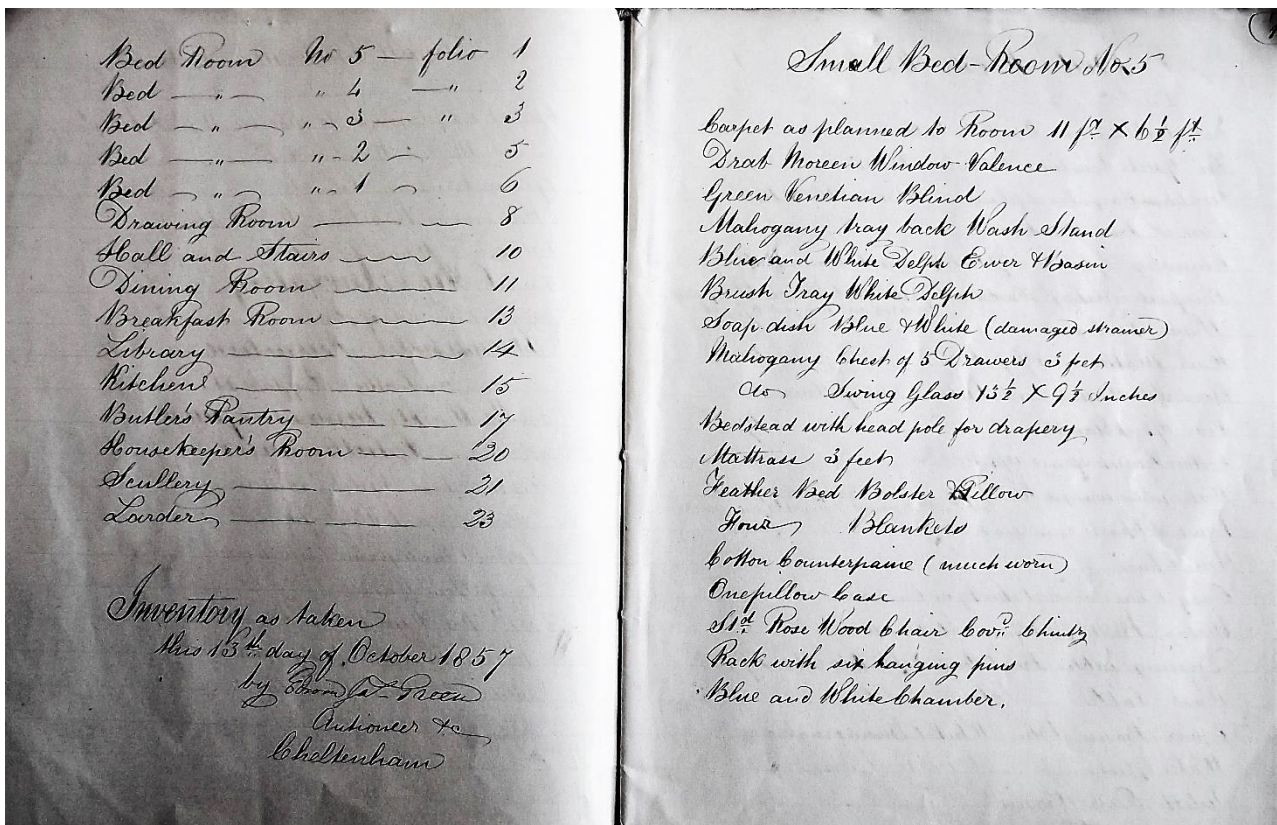 Bed Room No 5 — folio 1
Bed — " — " 4 — " 2
Bed — " — " — 3 — " 3
Bed — " — " - 2 — 5
Bed — " — " - 1 — 6
Drawing Room — — 8
Hall and Stairs — 10
Dining Room — — 11
Breakfast Room — — 13
Library — — — 14
Kitchen — — — 15
Butler's Pantry — — 17
Housekeeper's Room — — 20
Scullery — — — 21
Larder — — — 23
Inventory as taken
this 13th day of October 1857
by Green
Autioneer &c
Cheltenham
Small Bed-Room No. 5
Carpet as planned to Room 11 ft X 6 1/2 ft
Drab Moreen Window Valence
Green Venetian Blind
Mahogany tray back Wash Stand
Blue and White Delph Ewer & Basin
Brush Tray White Delph
Soap dish Blue & White (damaged strainer)
Mahogany Chest of 5 Drawers 3 feet
do Swing Glass 13 1/2 X 9 1/2 Inches
Bedstead with head pole for drapery
Mattrass 3 feet
Feather Bed Bolster & Pillow
Four Blankets
Cotton Counterpaine (much worn)
One pillow Case
Std Rose Wood Chair Covd Chintz
Rack with six hanging pins
Blue and White Chamber.